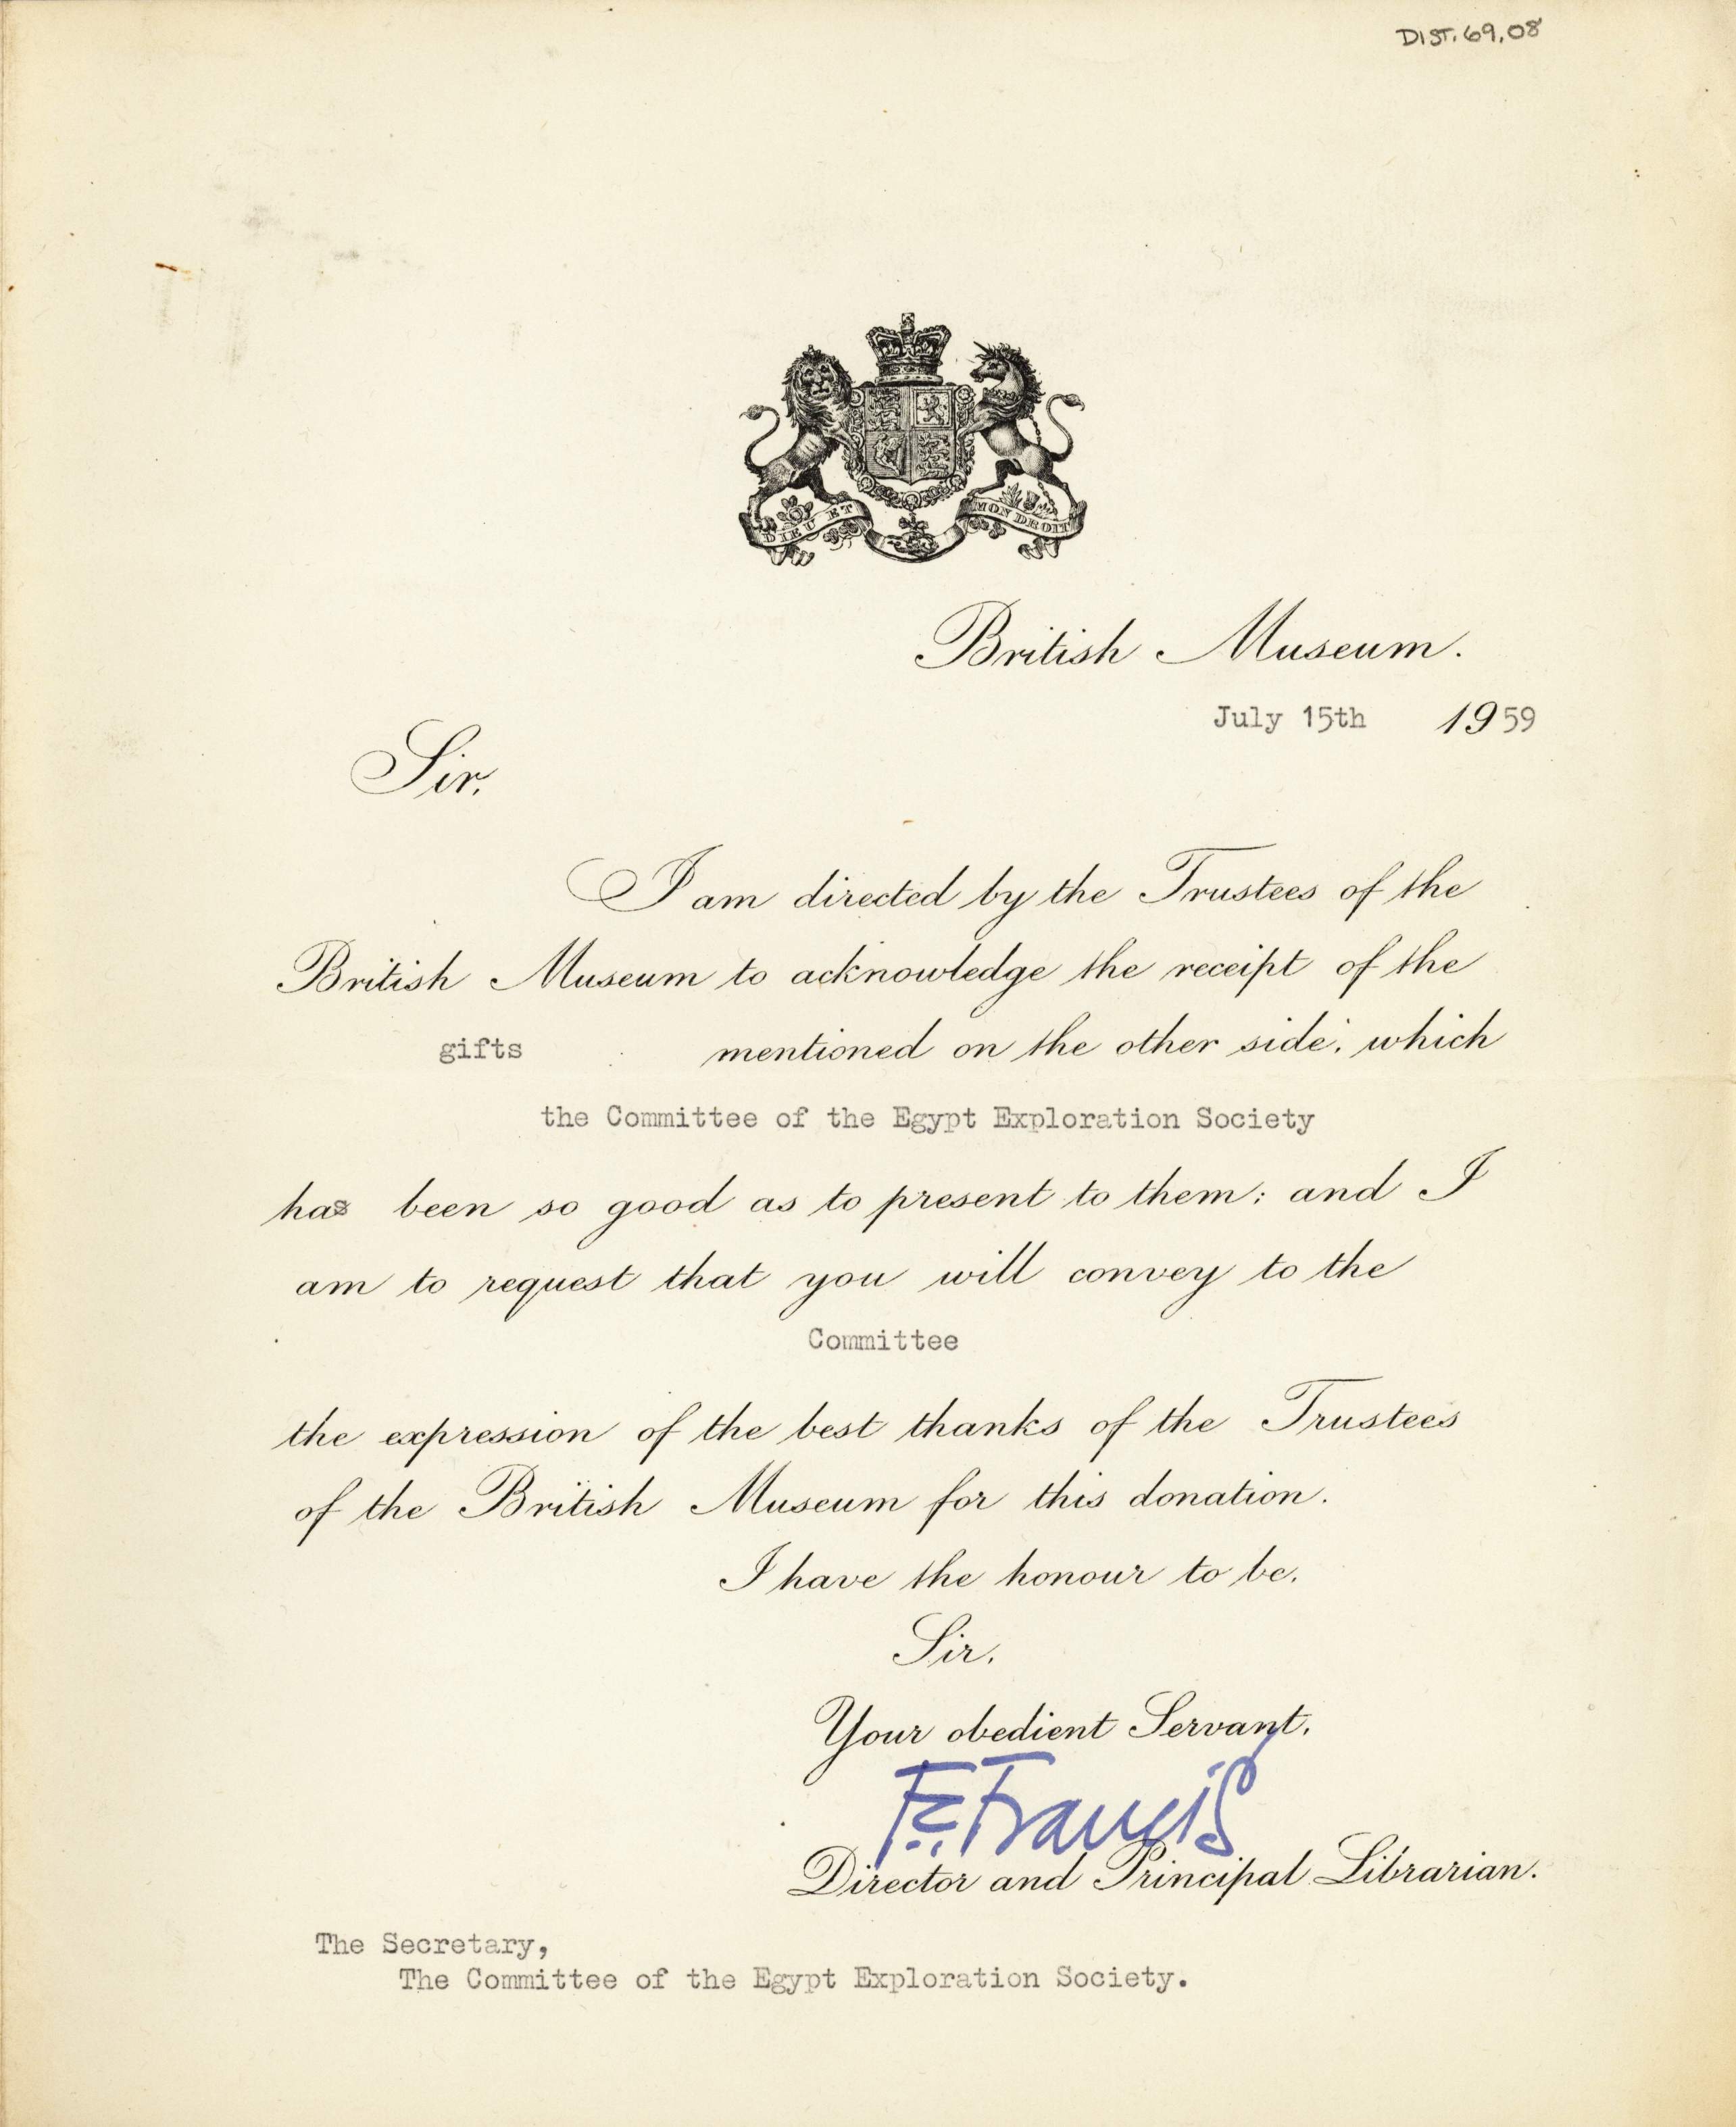 DIST.69.08
DIEU ET MON DROIT
British Museum.
July 15th 1959
Sir,
I am directed by the Trustees of the
British Museum to acknowledge the receipt of the
gifts mentioned on the other side, which
the Committee of the Egypt Exploration Society
has been so good as to present to them: and I
am to request that you will convey to the
Committee
the expression of the best thanks of the Trustees
of the British Museum for this donation.
I have the honour to be,
Sir,
Your obedient Servant,
F.C. Francis
Director and Principal Librarian.
The Secretary,
The Committee of the Egypt Exploration Society.